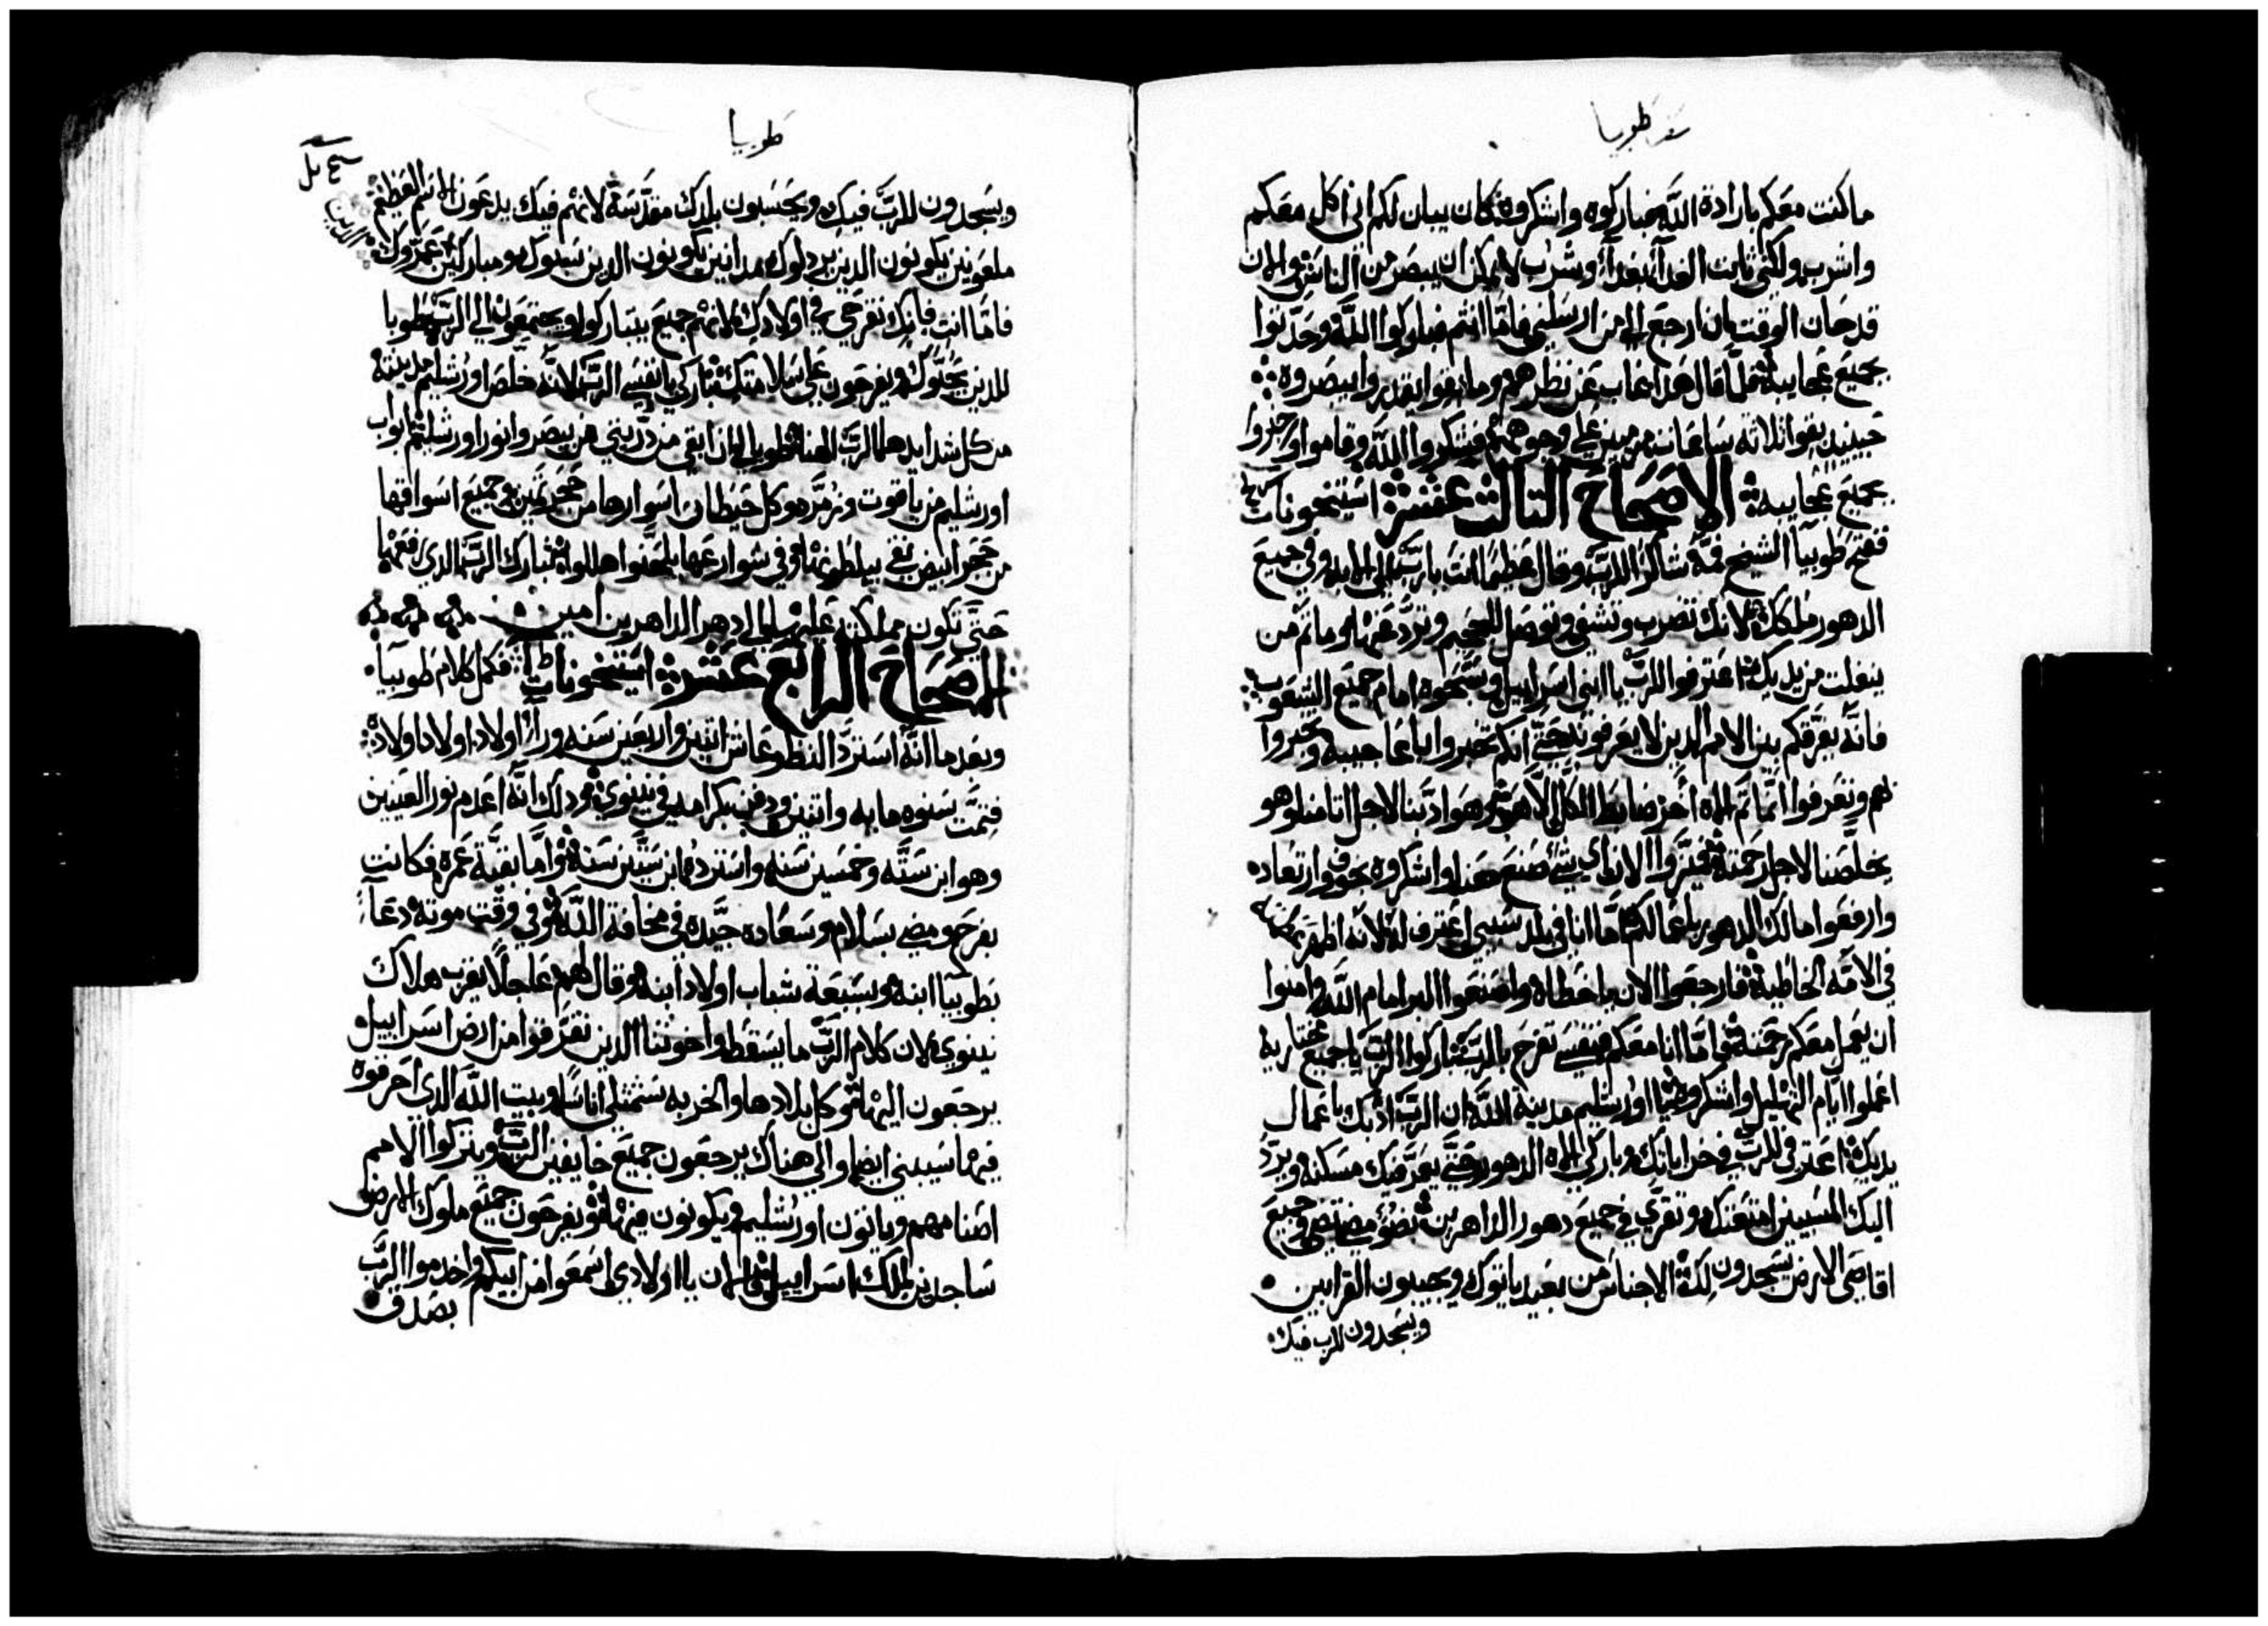 سفر طوبيا
ما كنت معكم بارادة الله فباركوه واشكروه كان يبان لكم اني اكل معكم
واشرب ولكني ثابت الغدآ بغدآ وشرب لا يمكن ان يبصر من الناس والان
قد حان الوقت بان ارجع الي من ارسلني فاما انتم فباركوا الله وحدثوا
بجميع عجايبه فلما قال هدا غاب عن نظرهم وما بقوا يقدروا يبصروه
حينيد بقوا تلاته ساعات مرميين علي وجوههم فشكروا الله وقاموا واخبروا
بجميع عجايبه الاصحاح التالت عشر استيخونات
ففتح طوبيا الشيخ فمه شاكر الرب وقال عظيما انت يارب الي الابد وفي جميع
الدهور ملكك لانك تضرب وتشفي وتوصل للجحيم وترد عنها وما تم من
ينفلت من يديك اعترفوا للرب يا بني اسراييل وسبحوه امام جميع الشعوب
فانه يفرقكم بين الامم الدين لا يعرفونه حتي انكم تخبروا باعاجيبه وتخبروا
لهم وتعرفوا انما تم اله اخر ضابط الكل الا هو هو ادبنا لاجل اتامنا وهو
يخلصنا لاجل رحمته فميزوا الان اي شي صنع معنا واشكروه بخوف وارتعاده
وارفعوا مالك الدهور باعمالكم اما انا في بلد سبيي اعترف له لانه اظهر
في الامه الخاطيه فارجعوا الان يا خطاه واصنعوا البر امام الله وامنوا
ان يعمل معكم رحمته اما انا معكم فنفسي تفرح بالرب باركوا الرب يا جميع مختاريه
اعملوا ايام التهليل واشكروه يا اورشليم مدينة الله ان الرب ادبك باعمال
يديك اعترفي للرب في خيراتك وباركي اله الدهور حتي يعمر فيك مسكنه ويرد
اليك المسبيين وتفرحي في جميع دهور الداهرين بضوء مضي وجميع
اقاصي الارض يسجدون لك الاجناس من بعيد ياتوك ويجيبون القرابين
ويسجدون للرب فيك
طوبيا
ويسجدون للرب فيك ويحسبون بلدك مقدسة لانهم فيك يدعون الاسم العظيم
ملعونين يكونون الدين يردلوك مدانين يكونون الدين يسبوك ومباركين عمروك
فاما انت فانك تفرحي في اولادك لانهم جميع يتباركوا ويجتمعون الي الرب طوبا
للدين يحبوك ويفرحون علي سلامتك باركي يا نفسي الرب لانه خلص اورشليم مدينته
من كل شدايدها الرب الهنا طوباي ان ابقي من دريتي من يبصروا نور اورشليم ابواب
اورشليم من ياقوت وزمرد وكل حيطان اسوارها من حجر تمين وجميع اسواقها
من حجر ابيض نقي يبلط وفي شوارعها يلحنوا هللويا تبارك الرب الدي رفعها
حتي تكون مملكته عليها الي ادهر الداهرين امين
الاصحاح الرابع عشر استيخونات فكمل كلام طوبيا
وبعدما انه استرد النظر عاش اتنين واربعين سنه وراء اولاد اولاد اولاده
فتمت سنوه مايه واتنين ودفن بكرامه في نينوي ودلك انه اعدم نور العينين
وهو ابن سته وخمسين سنه واسترده ابن ستين سنه واما بقية عمره فكانت
بفرح ومضي بسلام وسعاده جيده في مخافة الله وفي وقت موته دعا
بطوبيا ابنه وبسبعة شباب اولاد ابنه وقال لهم عاجلا يقرب هلاك
نينوي لان كلام الرب ما يسقط واخوتنا الدين تفرقوا من ارض اسراييل
يرجعون اليها وكل بلادها والخربه ستمتلي اناسا وبيت الله الدي احرقوه
فيها سيبني ايضا والي هناك يرجعون جميع خايفين الرب ويتركوا الامم
اصنامهم وياتون اورشليم ويكونون فيها ويفرحون جميع ملوك الارض
ساجدين لملك اسراييل والان يا اولادي اسمعوا من ابيكم واخدموا الرب
بصدق